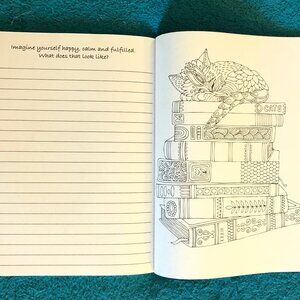 Imagine yourself happy, calm and fulfilled.
What does that look like?
CATS